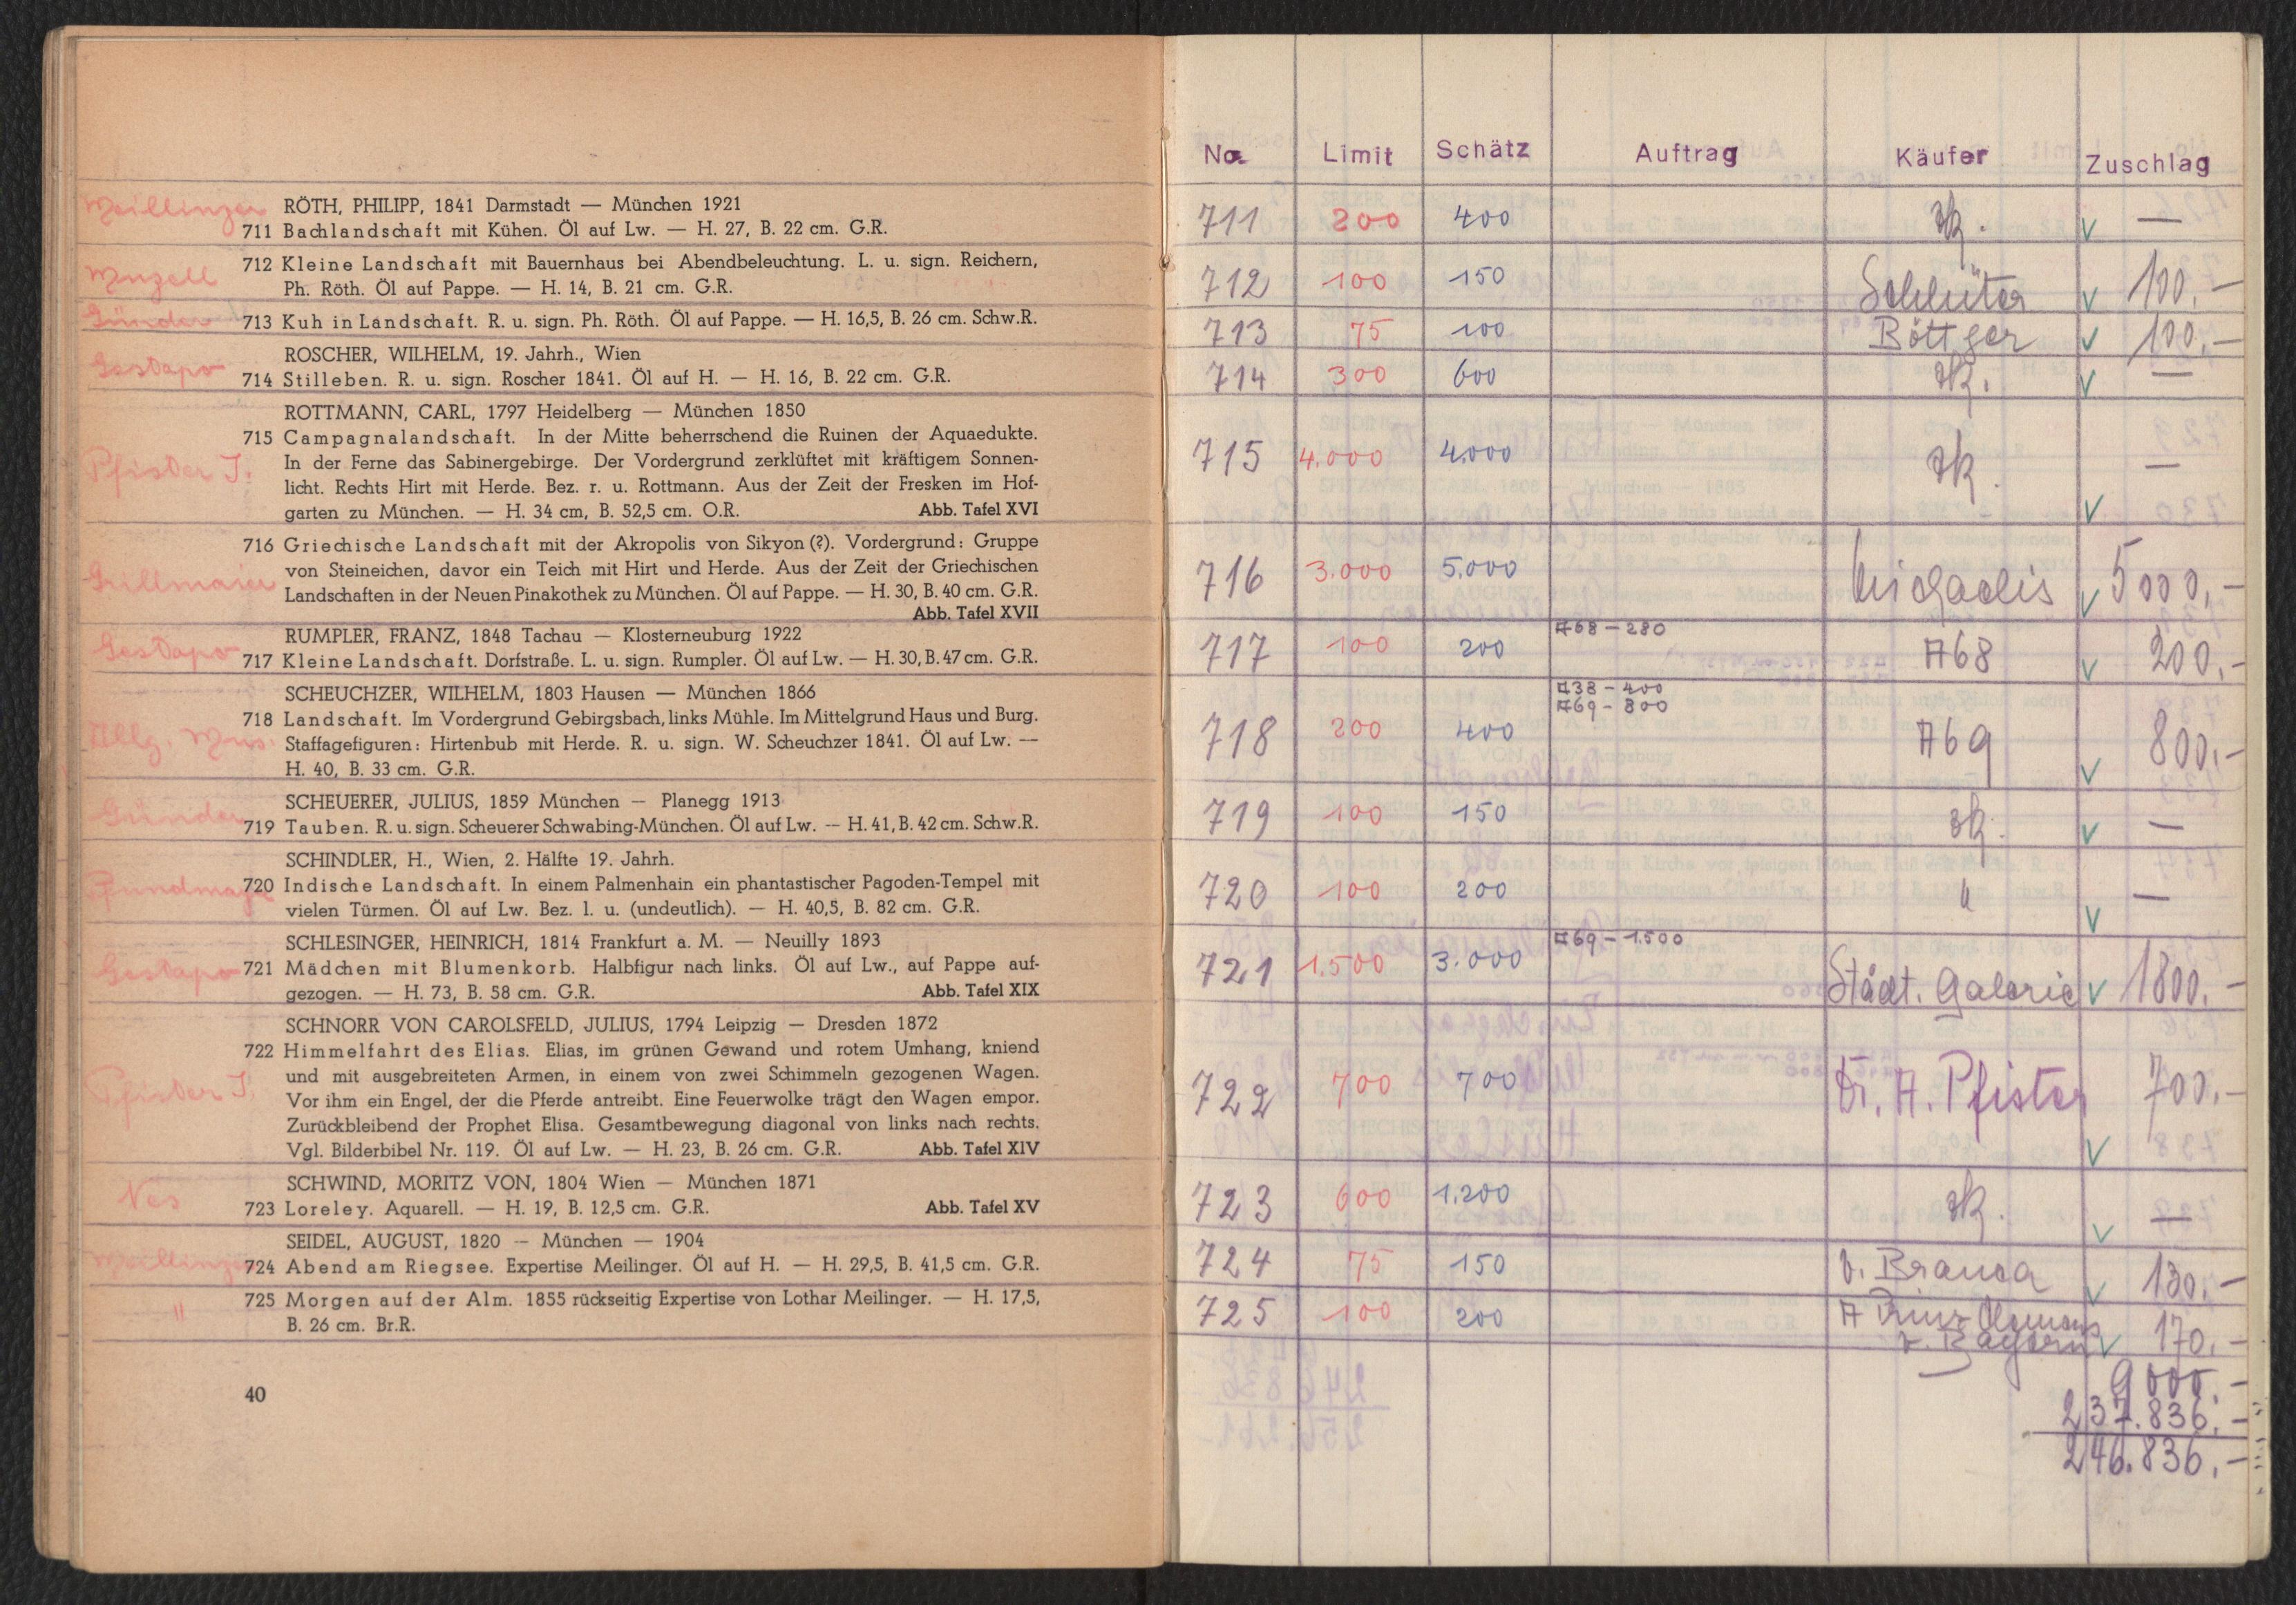 Meillinger RÖTH, PHILIPP, 1841 Darmstadt — München 1921
711 Bachlandschaft mit Kühen. Öl auf Lw. — H. 27, B. 22 cm. G.R.
712 Kleine Landschaft mit Bauernhaus bei Abendbeleuchtung. L. u. sign. Reichern,
Menzell Ph. Röth. Öl auf Pappe. — H. 14, B. 21 cm. G.R.
Günder 713 Kuh in Landschaft. R. u. sign. Ph. Röth. Öl auf Pappe. — H. 16,5, B. 26 cm. Schw.R.
ROSCHER, WILHELM, 19. Jahrh., Wien
Gestapo 714 Stilleben. R. u. sign. Roscher 1841. Öl auf H. — H. 16, B. 22 cm. G.R.
ROTTMANN, CARL, 1797 Heidelberg — München 1850
715 Campagnalandschaft. In der Mitte beherrschend die Ruinen der Aquaedukte.
Pfister J. In der Ferne das Sabinergebirge. Der Vordergrund zerklüftet mit kräftigem Sonnen-
licht. Rechts Hirt mit Herde. Bez. r. u. Rottmann. Aus der Zeit der Fresken im Hof-
garten zu München. — H. 34 cm, B. 52,5 cm. O.R. Abb. Tafel XVI
716 Griechische Landschaft mit der Akropolis von Sikyon (?). Vordergrund: Gruppe
Grillmaier von Steineichen, davor ein Teich mit Hirt und Herde. Aus der Zeit der Griechischen
Landschaften in der Neuen Pinakothek zu München. Öl auf Pappe. — H. 30, B. 40 cm. G.R.
Abb. Tafel XVII
RUMPLER, FRANZ, 1848 Tachau — Klosterneuburg 1922
Gestapo 717 Kleine Landschaft. Dorfstraße. L. u. sign. Rumpler. Öl auf Lw. — H. 30, B. 47 cm. G.R.
SCHEUCHZER, WILHELM, 1803 Hausen — München 1866
718 Landschaft. Im Vordergrund Gebirgsbach, links Mühle. Im Mittelgrund Haus und Burg.
Allg. Mus. Staffagefiguren: Hirtenbub mit Herde. R. u. sign. W. Scheuchzer 1841. Öl auf Lw. —
H. 40, B. 33 cm. G.R.
SCHEUERER, JULIUS, 1859 München — Planegg 1913
Günder 719 Tauben. R. u. sign. Scheuerer Schwabing-München. Öl auf Lw. — H. 41, B. 42 cm. Schw.R.
SCHINDLER, H., Wien, 2. Hälfte 19. Jahrh.
Pfundmayr 720 Indische Landschaft. In einem Palmenhain ein phantastischer Pagoden-Tempel mit
vielen Türmen. Öl auf Lw. Bez. l. u. (undeutlich). — H. 40,5, B. 82 cm. G.R.
SCHLESINGER, HEINRICH, 1814 Frankfurt a. M. — Neuilly 1893
Gestapo 721 Mädchen mit Blumenkorb. Halbfigur nach links. Öl auf Lw., auf Pappe auf-
gezogen. — H. 73, B. 58 cm. G.R. Abb. Tafel XIX
SCHNORR VON CAROLSFELD, JULIUS, 1794 Leipzig — Dresden 1872
722 Himmelfahrt des Elias. Elias, im grünen Gewand und rotem Umhang, kniend
und mit ausgebreiteten Armen, in einem von zwei Schimmeln gezogenen Wagen.
Pfister J. Vor ihm ein Engel, der die Pferde antreibt. Eine Feuerwolke trägt den Wagen empor.
Zurückbleibend der Prophet Elisa. Gesamtbewegung diagonal von links nach rechts.
Vgl. Bilderbibel Nr. 119. Öl auf Lw. — H. 23, B. 26 cm. G.R. Abb. Tafel XIV
SCHWIND, MORITZ VON, 1804 Wien — München 1871
Nes 723 Loreley. Aquarell. — H. 19, B. 12,5 cm. G.R. Abb. Tafel XV
SEIDEL, AUGUST, 1820 — München — 1904
Meillinger 724 Abend am Riegsee. Expertise Meilinger. Öl auf H. — H. 29,5, B. 41,5 cm. G.R.
" 725 Morgen auf der Alm. 1855 rückseitig Expertise von Lothar Meilinger. — H. 17,5,
B. 26 cm. Br.R.
40
No. Limit Schätz Auftrag Käufer Zuschlag
711 200 400 zk. v —
712 100 150 Schlüter v 100.—
713 75 100 Böttger v 100.—
714 300 600 zk. v —
715 4.000 4.000 zk. v —
716 3.000 5.000 Michaelis v 5000.—
A68 — 280
717 100 200 A68 v 200.—
A38 — 400
A69 — 800
718 200 400 A69 v 800.—
719 100 150 zk. v —
720 100 200 " v —
A69 — 1.500
721 1.500 3.000 Städt. Galerie v 1800.—
722 700 700 Dr. A. Pfister v 700.—
723 600 1.200 zk. v —
724 75 150 v. Branca v 130.—
725 100 200 A Prinz Clemens
v. Bayern v 170.—
9000.—
237.836.—
246.836.—